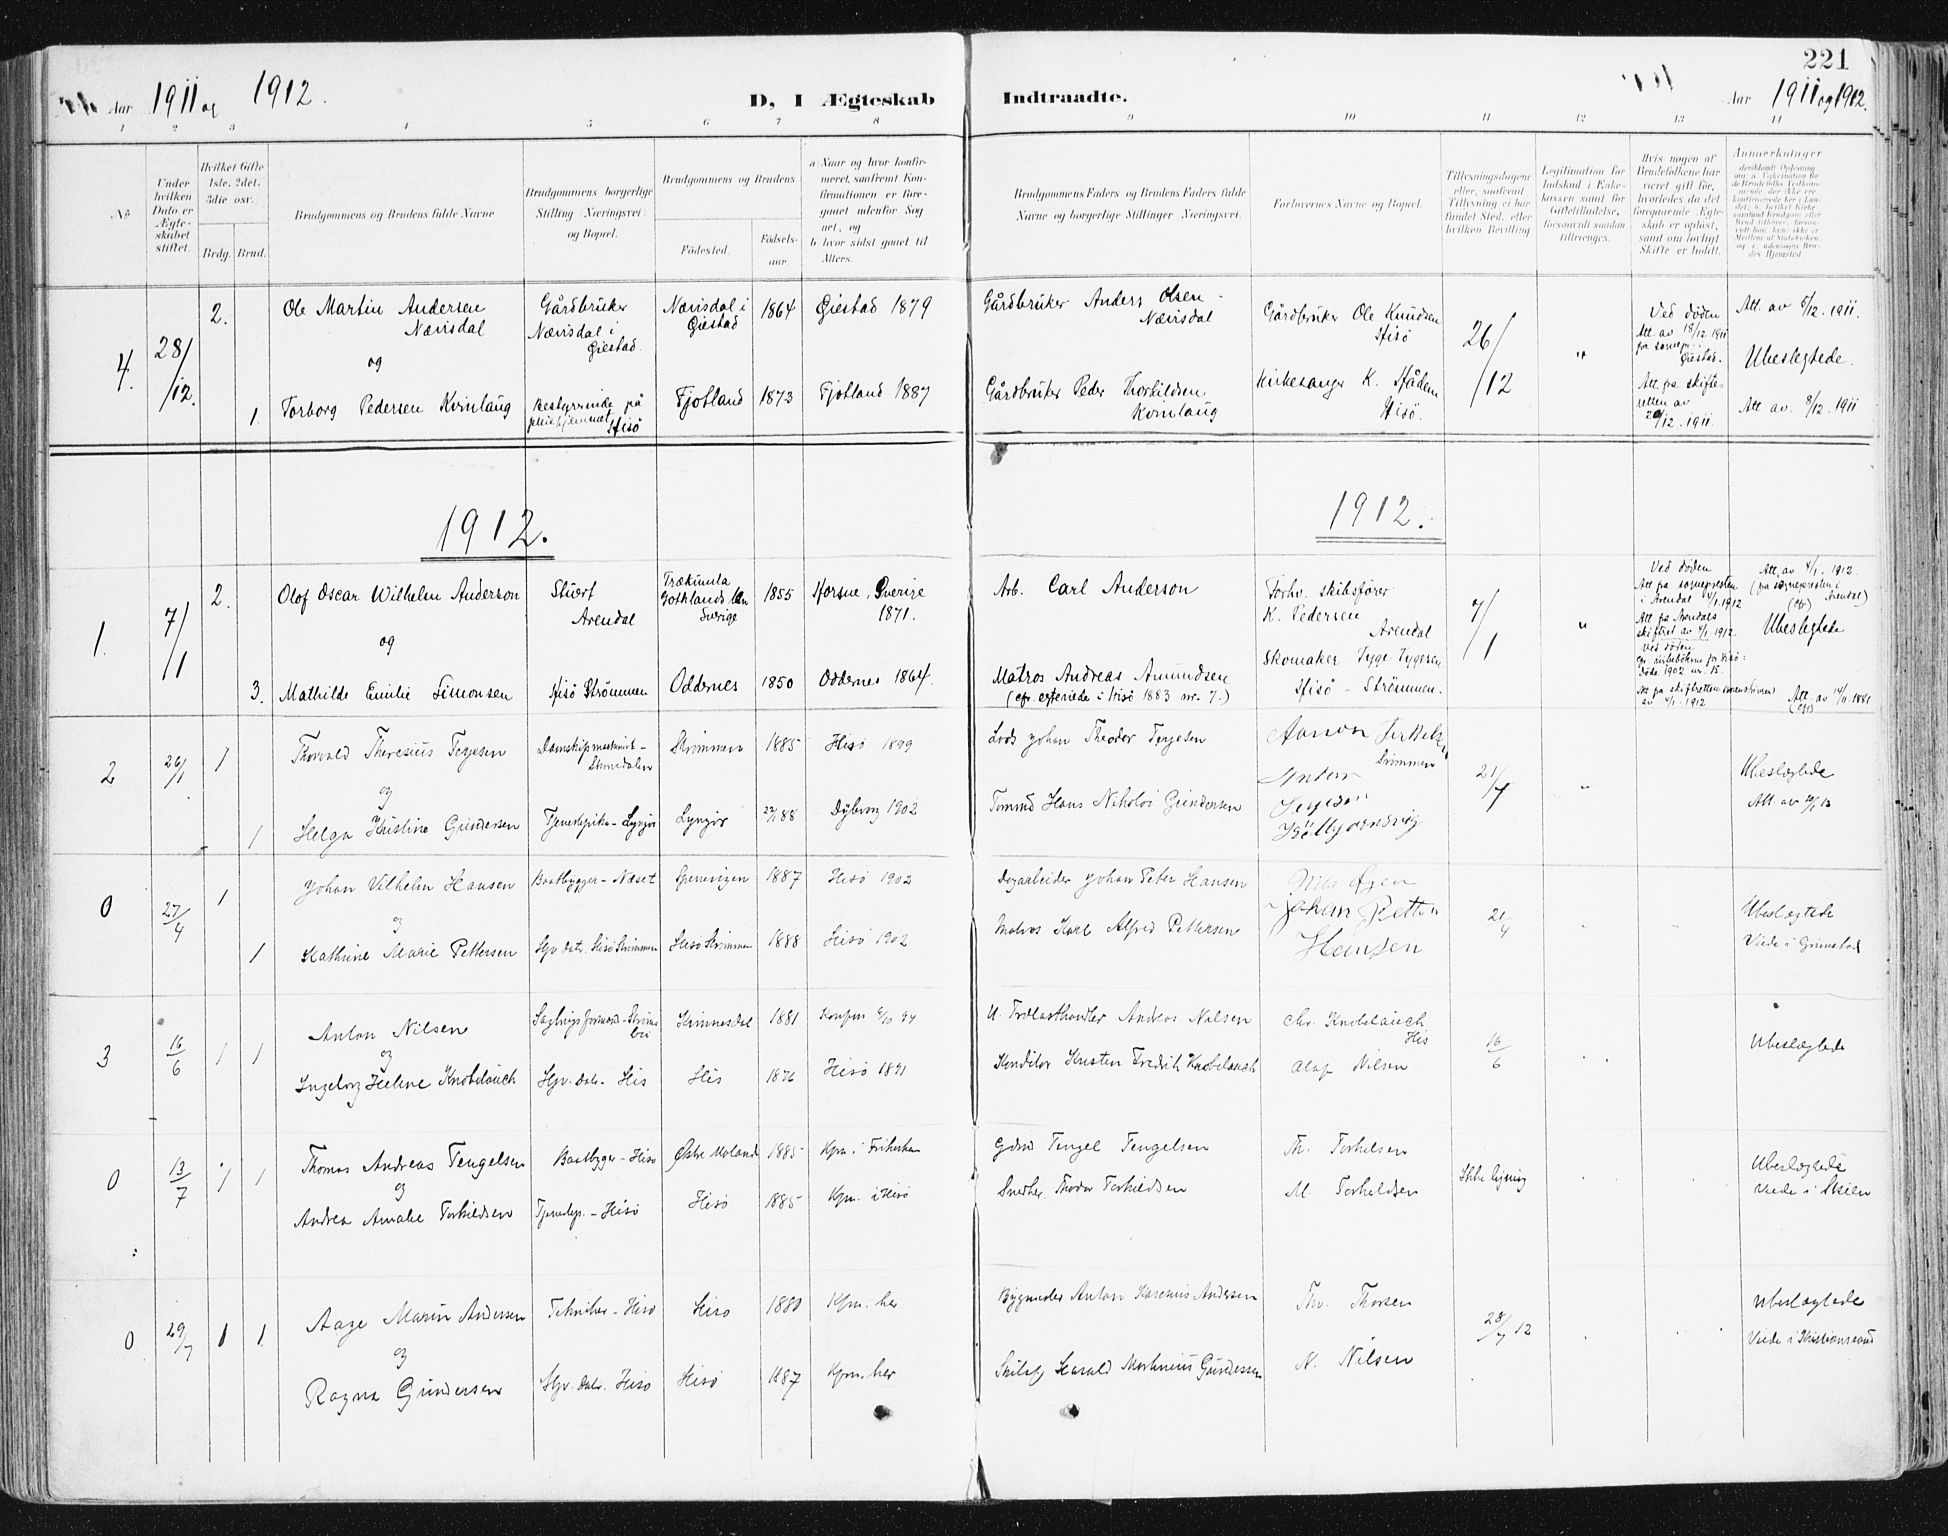 221
Aar 1911 og 1912.
D, I Ægteskab Indtraadte.
Aar 1911 og 1912.
1 2 3 4 5 6 7 8 9 10 11 12 13 14
No
Under hvilken Dato er Ægteskabet stiftet.
Hvilket Gifte 1ste, 2det, 3die osv.
Brdg. Brud.
Brudgommens og Brudens fulde Navne
Brudgommens borgerlige Stilling (Næringsvei) og Bopæl.
Brudgommens og Brudens
Fødested.
Fødselsaar.
a Naar og hvor konfirmeret, saafremt Konfirmationen er foregaaet udenfor Sognet, og
b hvor sidst gaaet til Alters.
Brudgommens Faders og Brudens Faders fulde Navne og borgerlige Stillinger (Næringsvei).
Forlovernes Navne og Bopæl.
Tillysningsdagene eller, saafremt Tillysning ei har fundet Sted, efter hvilken Bevilling
Legitimation for Indskud i Enkekassen samt for Giftetilladelse, forsaavidt saadan tiltrænges.
Hvis nogen af Brudefolkene har været gift før, hvorledes da det foregaaende Ægteskab er opløst, samt om lovligt Skifte er holdt.
Anmærkninger
4. 28/12. 2. Ole Martin Andersen Nævisdal
Gårdbruker Nævisdal i Øiestad.
Nævisdal i Øiestad 1864 Øiestad 1879
Gårdbruker Anders Olsen Nævisdal
Gårdbruker Ole Knudsen Hisö
26/12 "
Ved döden
Att. av 18/12 1911
Øiestad.
Att. av 5/12. 1911.
Ubeslegtede.
og
1. Torborg Pedersen Kvinlaug
Bestyrerinde på pleiehjemmet Hisö
Fjotland 1873 Fjotland 1887
Gårdbruker Peder Thorkildsen Kvinlaug
Kirkesanger K. Hisö.
Att. fra skifteretten av 20/12. 1911.
Att av. 8/12. 1911
1912. 1912.
1. 7/1 2. Olof Oscar Wilhelm Anderson
Stuert Arendal
Trækumla Gotlands län Sverige 1855
Horsne, Sverige 1871.
Arb. Carl Anderson
Forhv. skibsfører K. Pedersen Arendal
7/1 "
Ved döden
Att. fra sognepresten i Arendal 4/1. 1912
Att. fra Arendals skifteret av 4/1. 1912.
Att. av 4/1. 1912.
(fra sognepresten i Arendal)
Ubeslegtede
og
3. Mathilde Emilie Simonsen
Hisö Strömmen
Oddernes 1850 Oddernes 1864.
Matros Andreas Amundsen
(cfr. egteviede i Hisö 1883 nr. 7.)
Skomaker Tyge Tygesen Hisö - Strömmen.
Ved döden
cfr. kirkebökerne for Hisö: döde 1902 nr. 15.
Att fra skifteretten av 4/1. 1912
Att. av 14/11. 1881
2 26/1 1 Thorvald Theresius Terjesen
Strömmen 1885 Hisö 1899
Lods Johan Theodor Terjesen
Strömmen
21/1 "
Ubeslægtede
og
1 Helga Kristine Gundersen
Tjenestepike - Lyngör
Lyngör 88 Dybvaag 1902
Tømmd Hans Nikolai Gundersen
0 27/4 1 Johan Vilhelm Hansen
Baatbygger - Næset
Gjervigen 1887 Hisö 1902
Dagarbeider Johan Peter Hansen
Nils
Johan Petter Hansen
21/4
Ubeslægtede
Viede i Grimstad
og
1 Kathrine Marie Pettersen
Hjv. datr. Hisö Strömmen
Hisö Strömmen 1888 Hisö 1902
Matros Karl Alfred Pettersen
3 16/6 1 1 Anton Nilsen
1881
Trælasthandler Andreas Nilsen
Chr. Knobelauch His
16/6
Ubeslægtede
og
Ingeborg Helene Knobelauch
Hjv. datr. His
His 1876 Hisö 1891
Konditor Kristen Fredrik Knobelauch
Olaf Nilsen
0 13/7 1 1 Thomas Andreas Tengelsen
Baatbygger - Hisö
Østre Moland 1885
Kfm. i Frikirken
Gdbd Tengel Tengelsen
Th. Torkelsen
Ikke lysning
Ubeslægtede
Viede i Skien
og
Andrea Amalie Torkildsen
Tjenestep. - Hisö
Hisö 1885 Kfm. i Hisö
Snedker Thodor Torkildsen
M. Torkildsen
0 29/7 1 1 Aage Marin Andersen
Tekniker - Hisö
Hisö 1880 Kfm. her
Bygmester Anton Andersen
Thv. Thorsen
28/7 12
Ubeslægtede
Viede i Kristianssand
og
Ragna Gundersen
Hjv. datr. Hisö
Hisö 1887 Kfm. her
Skibsf. Harald Martinius Gundersen
N. Nilsen